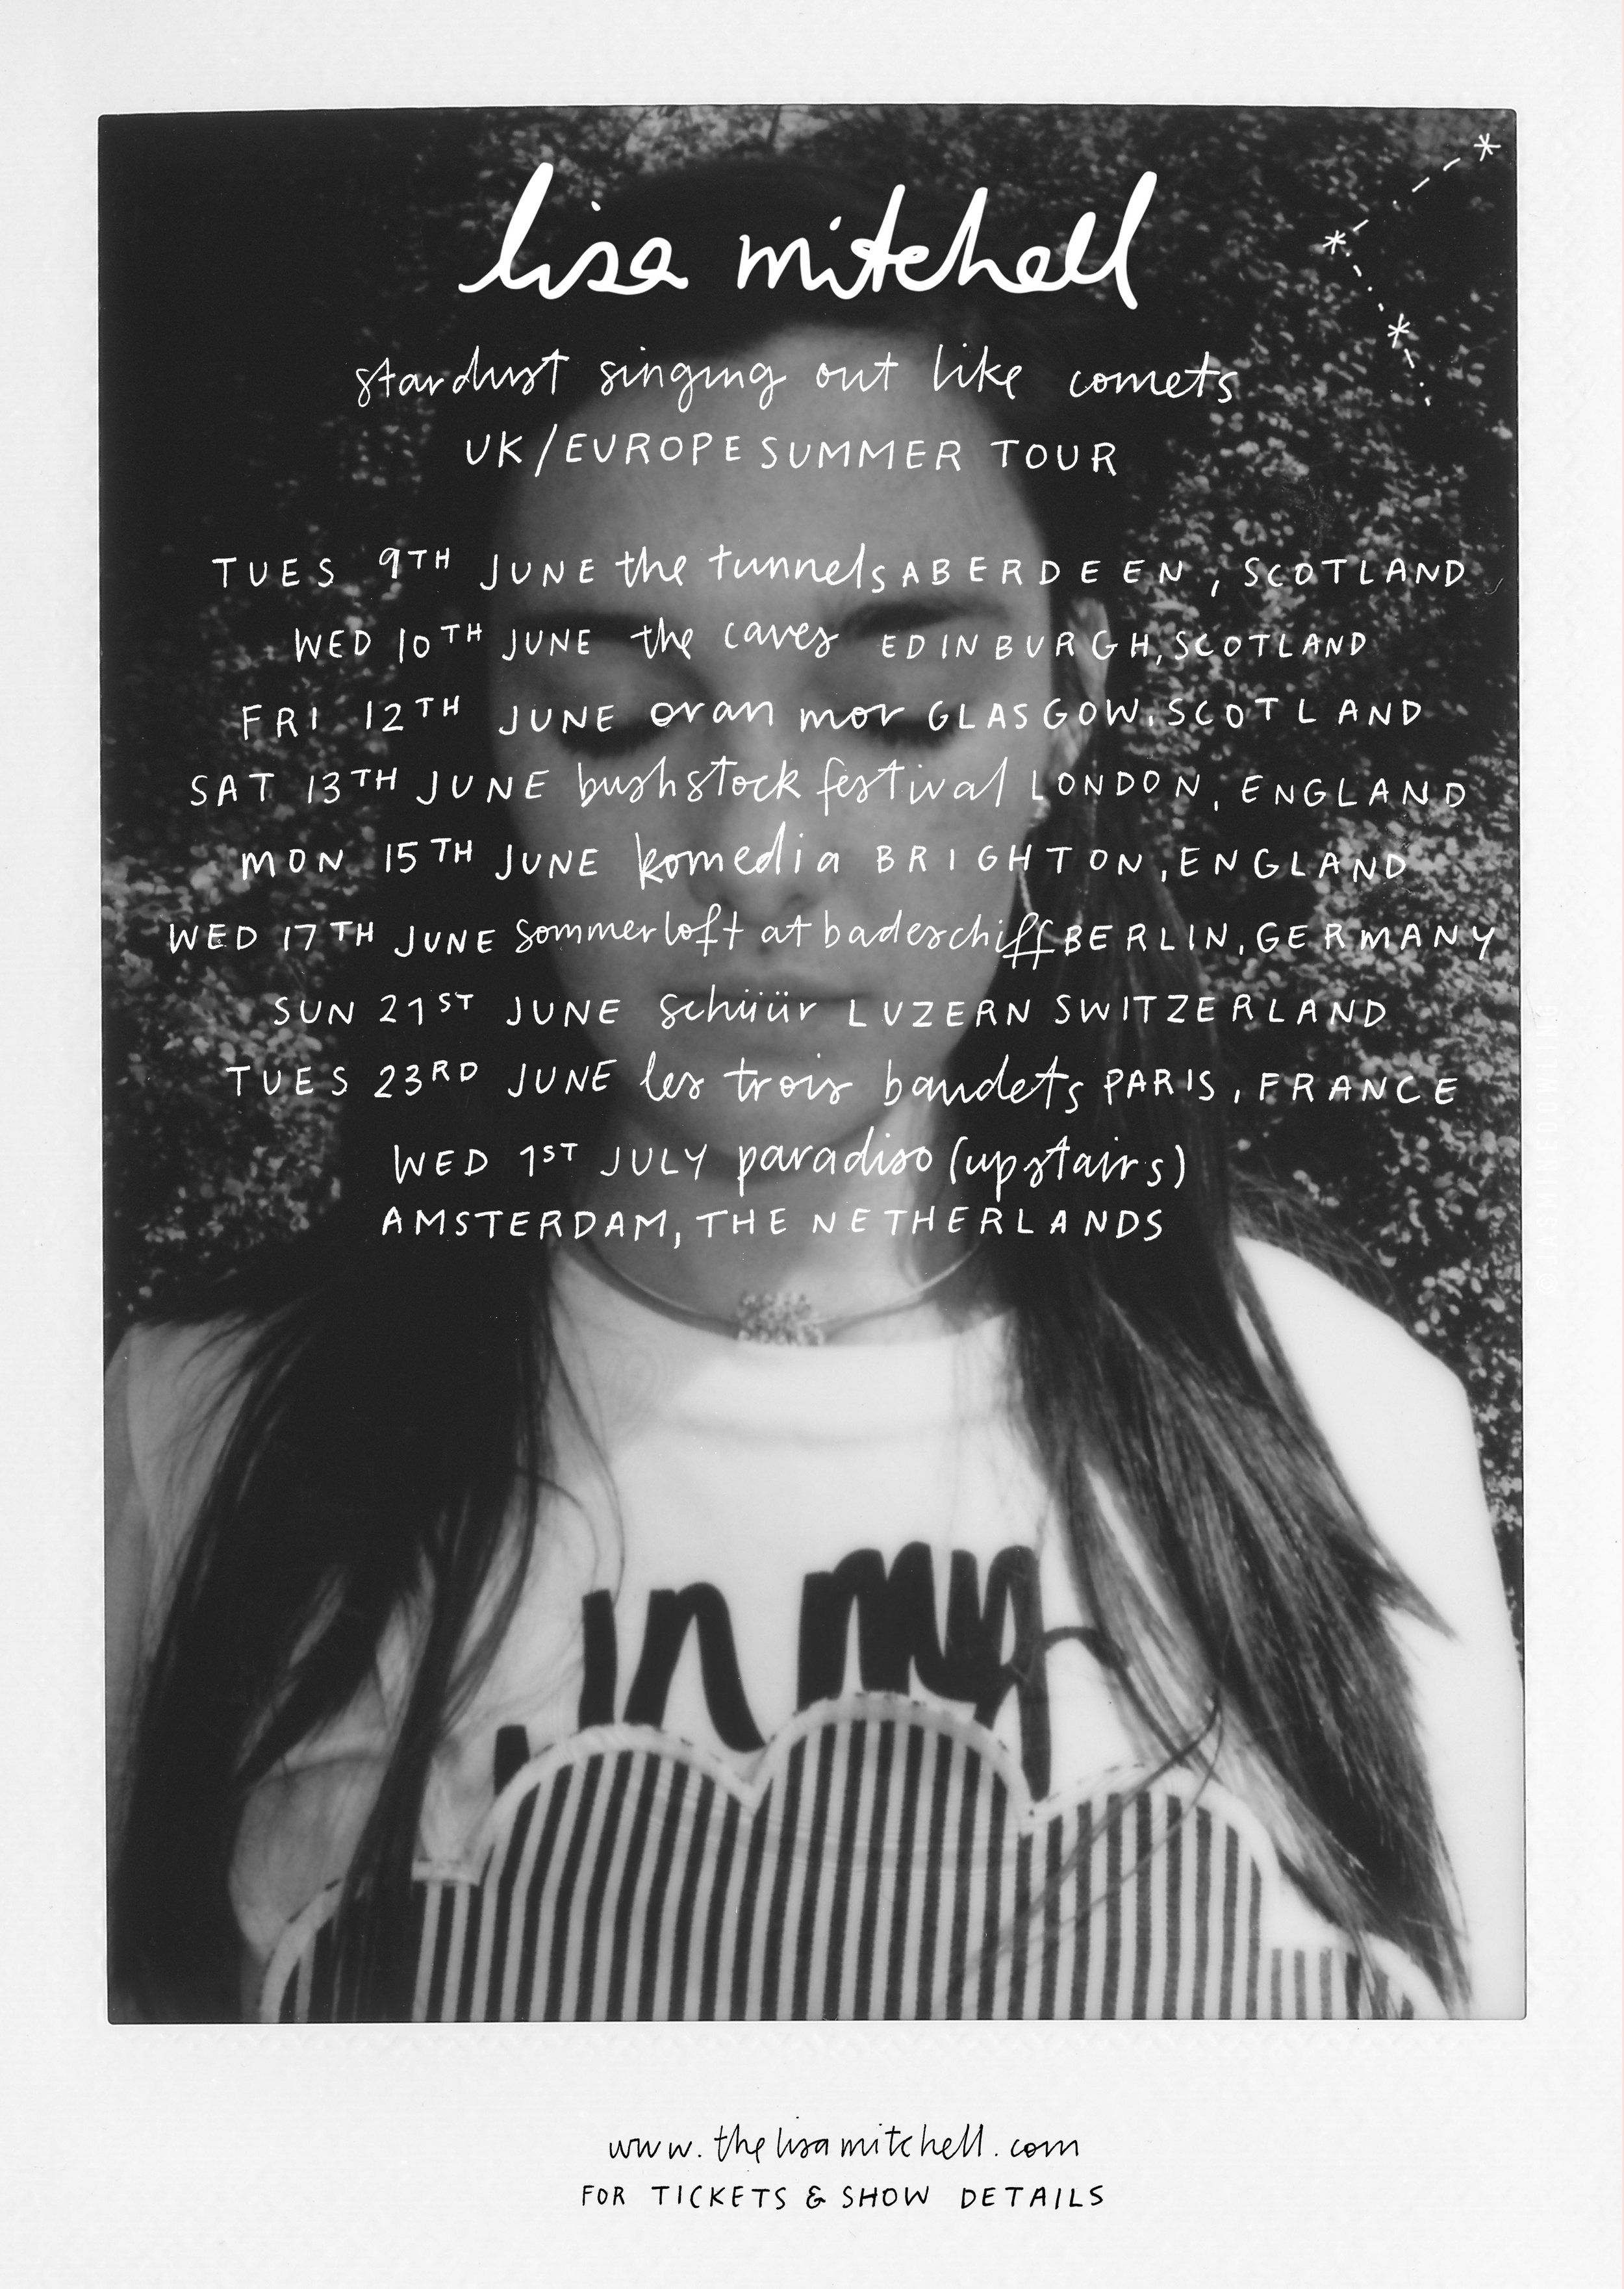 lisa mitchell
stardust singing out like comets
UK/EUROPE SUMMER TOUR
TUES 9TH JUNE the tunnels ABERDEEN, SCOTLAND
WED 10TH JUNE the caves EDINBURGH, SCOTLAND
FRI 12TH JUNE oran mor GLASGOW, SCOTLAND
SAT 13TH JUNE bushstock festival LONDON, ENGLAND
MON 15TH JUNE komedia BRIGHTON, ENGLAND
WED 17TH JUNE sommerloft at badeschiff BERLIN, GERMANY
SUN 21ST JUNE schüür LUZERN SWITZERLAND
TUES 23RD JUNE les trois baudets PARIS, FRANCE
WED 1ST JULY paradiso (upstairs)
AMSTERDAM, THE NETHERLANDS
in my
www.thelisamitchell.com
FOR TICKETS & SHOW DETAILS